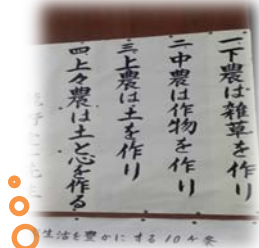 一、下農は雑草を作り
二、中農は作物を作り
三、上農は土を作り
四、上々農は土と心を作る
生活を豊かにする10ケ条